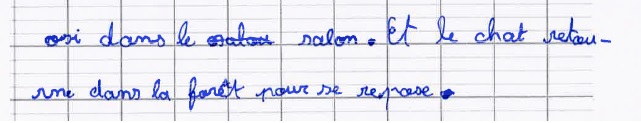 osi dans le salon. Et le chat retou-
rne dans la forêt pour se repose.